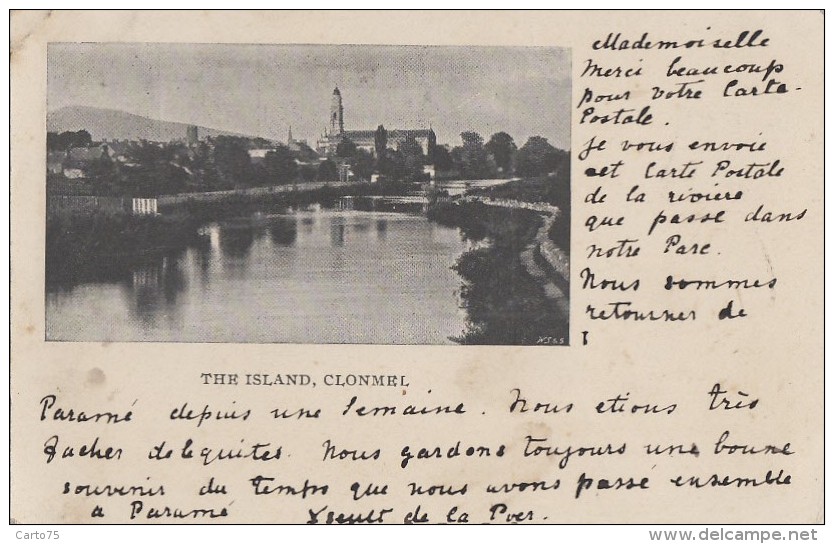 Mademoiselle
Merci beaucoup
pour votre Carte
Postale.
je vous envoie
cet Carte Postale
de la rivière
que passe dans
notre Parc.
Nous sommes
retourner de
THE ISLAND, CLONMEL
Paramé depuis une Semaine. Nous etions très
facher de les quittes. Nous gardons toujours une boune
souvenir du temps que nous avons passé ensemble
a Paramé Yseult de la Poer.
Carto75
www.delcampe.net